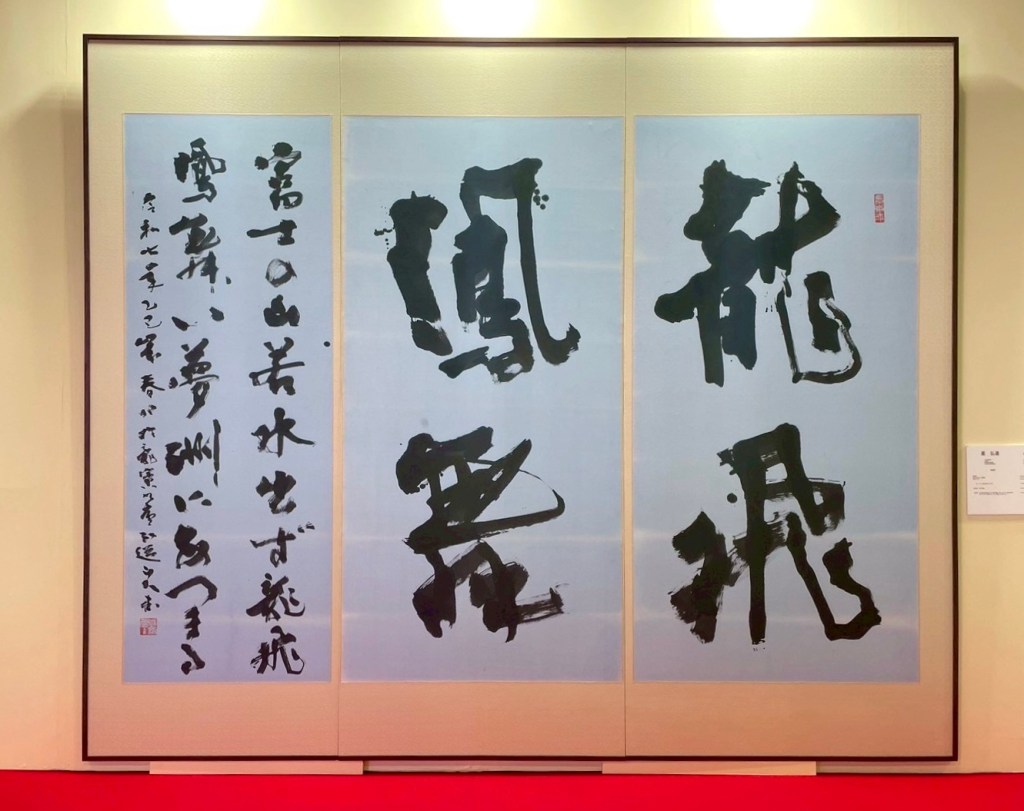 龍飛
鳳舞
富士の山若水出ず龍飛
鳳舞い夢洲にあつまる
令和七年乙巳歳春